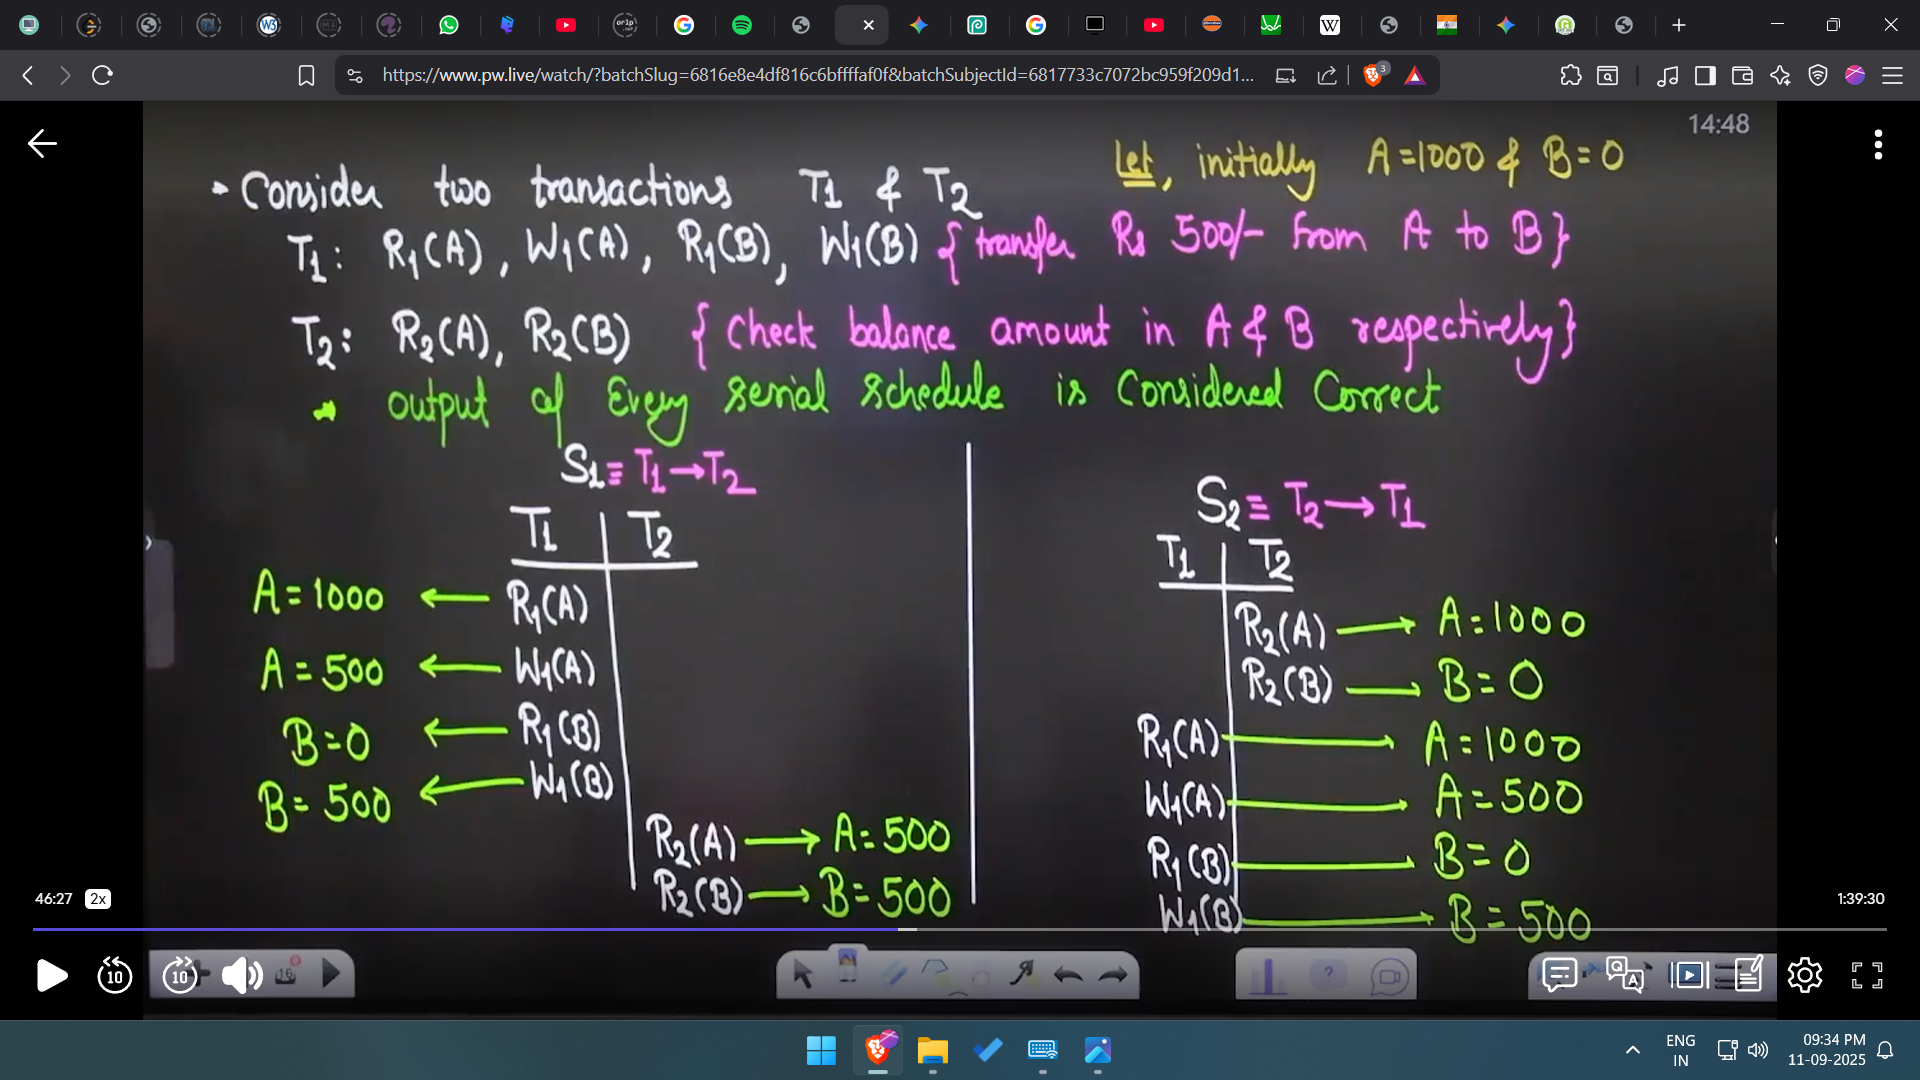 https://www.pw.live/watch/?batchSlug=6816e8e4df816c6bffffaf0f&batchSubjectId=6817733c7072bc959f209d1...
3
14:48
Let, initially A=1000 & B=0
• Consider two transactions T1 & T2
T1: R1(A), W1(A), R1(B), W1(B) {transfer Rs 500/- from A to B}
T2: R2(A), R2(B) {Check balance amount in A & B respectively}
→ output of Every serial schedule is Considered Correct
S1 ≡ T1→T2
T1 T2
A=1000 ← R1(A)
A=500 ← W1(A)
B=0 ← R1(B)
B=500 ← W1(B)
R2(A) → A=500
R2(B) → B=500
S2 ≡ T2→T1
T1 T2
R2(A) → A=1000
R2(B) → B=0
R1(A) → A=1000
W1(A) → A=500
R1(B) → B=0
W1(B) → B=500
46:27 2x
1:39:30
10
10
16
ENG
IN
09:34 PM
11-09-2025